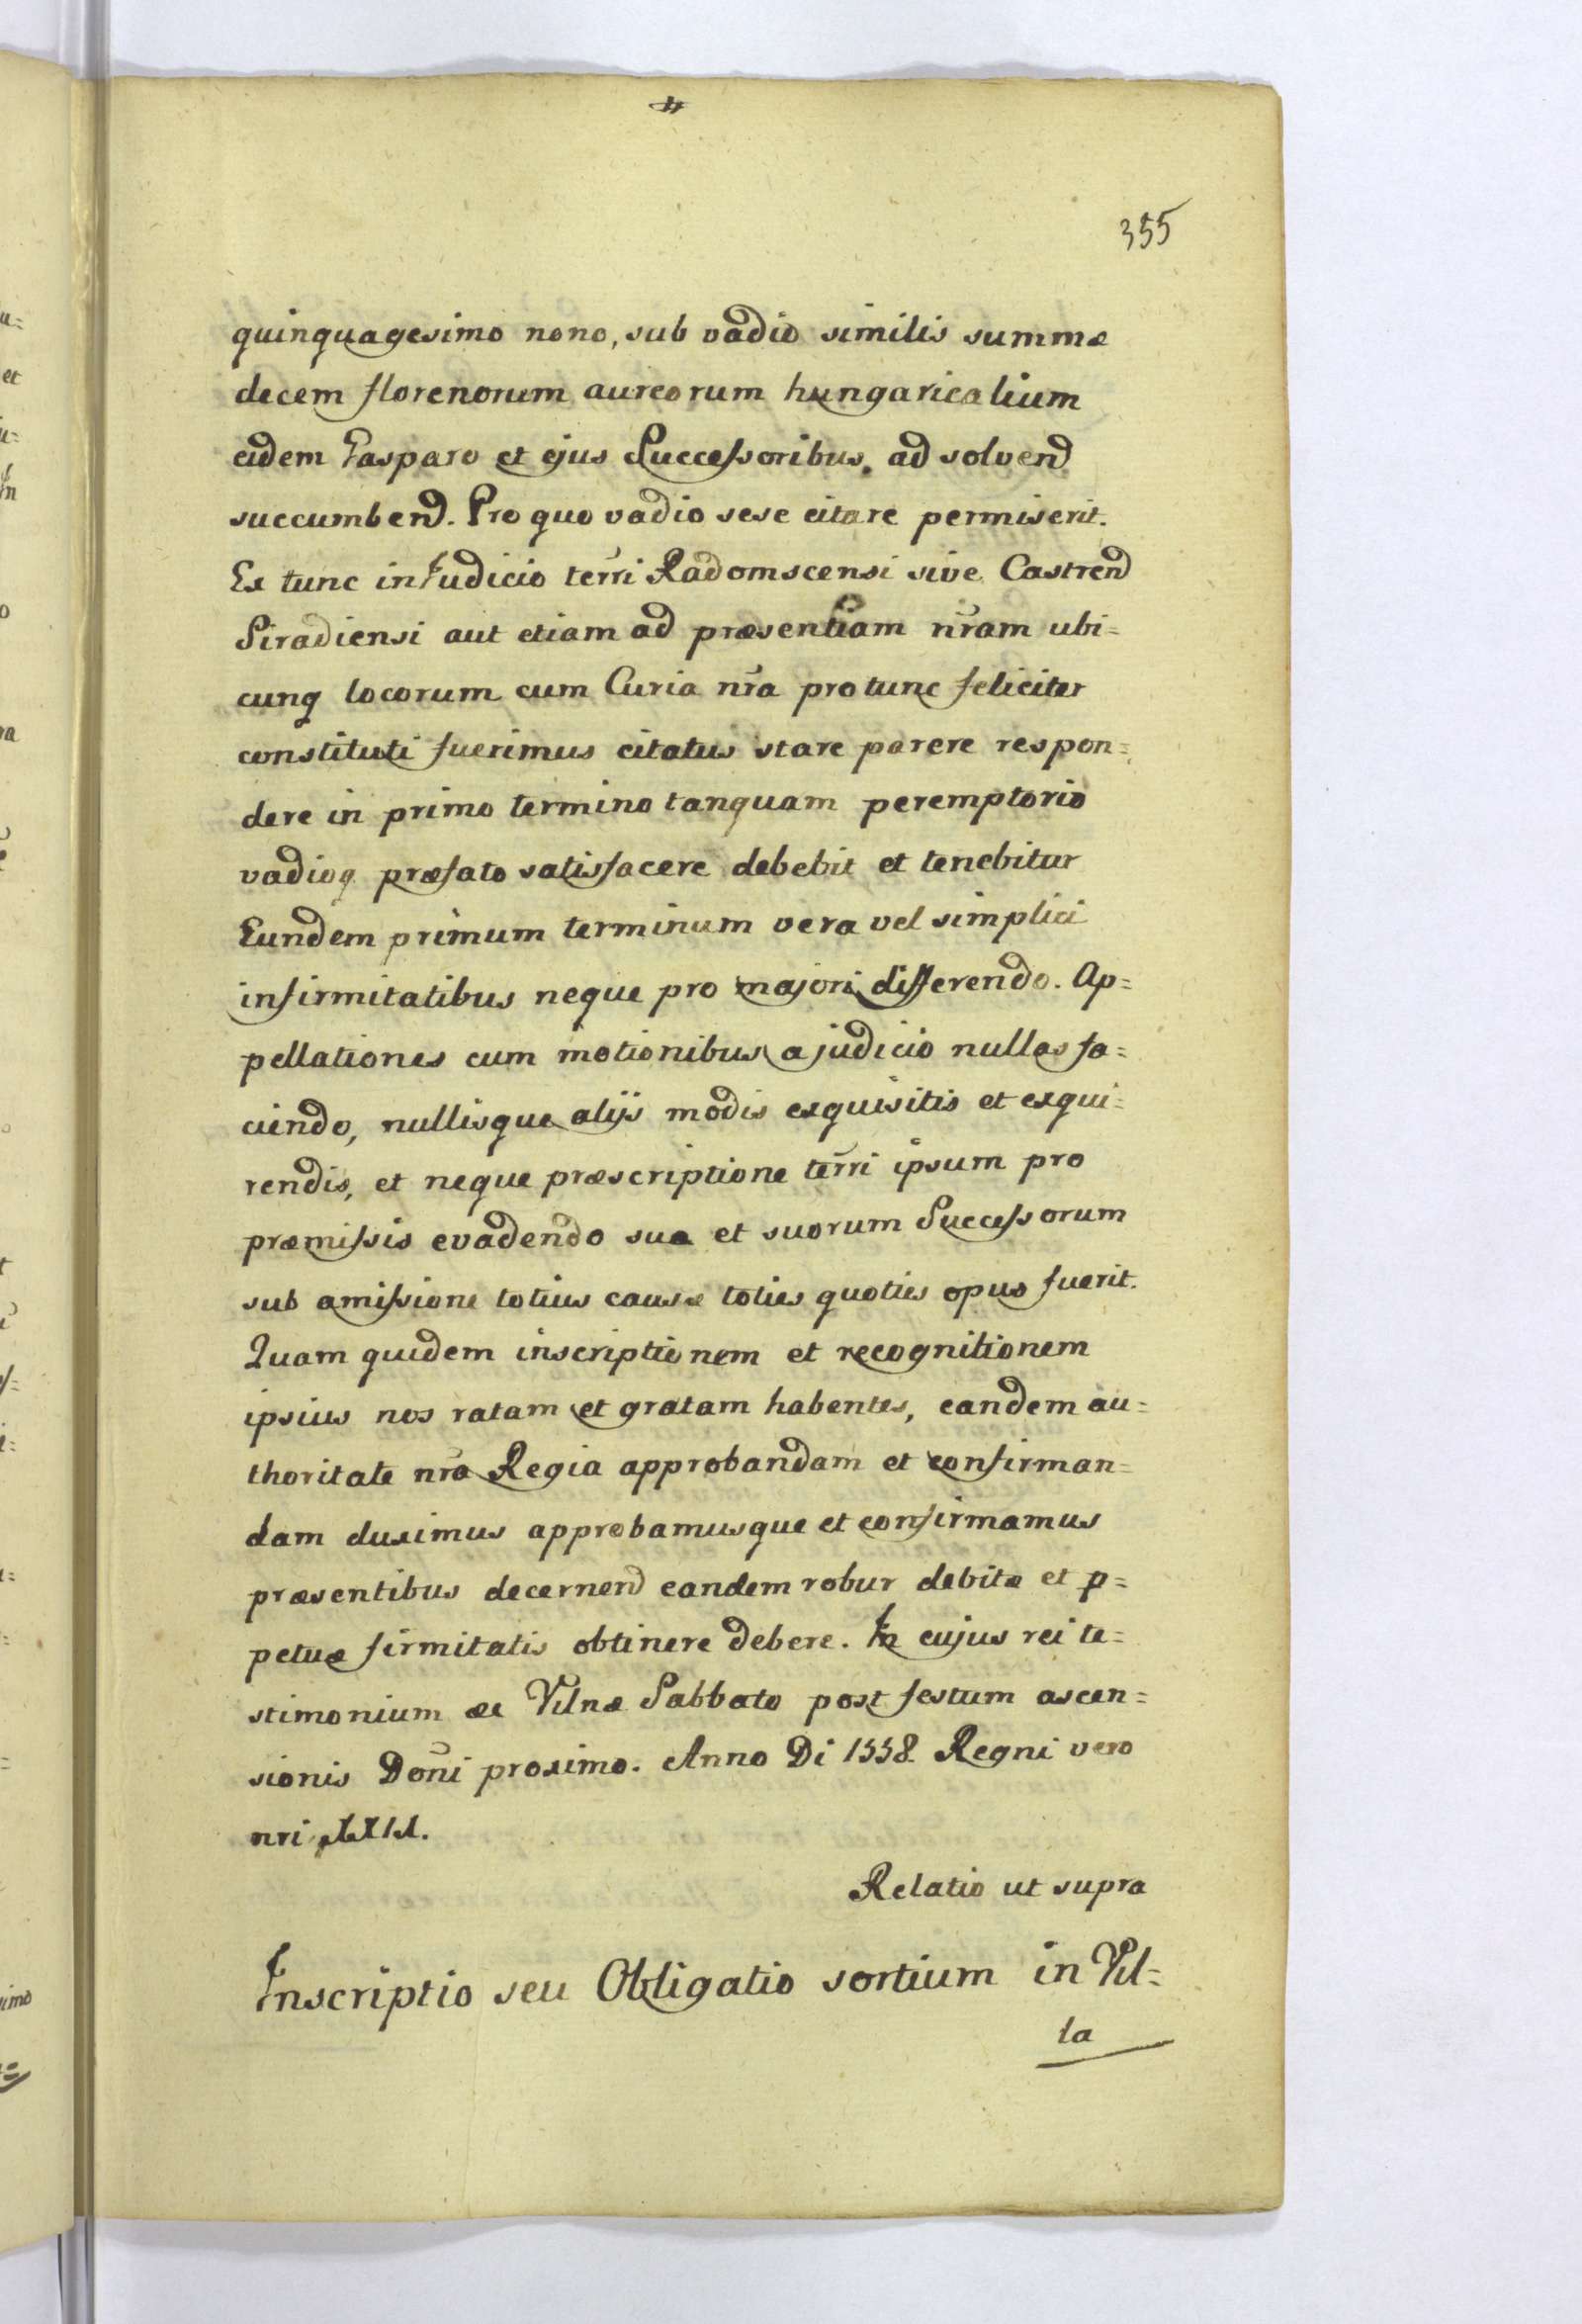 355
quinquagesimo nono, sub vadio similis summæ
decem florenorum aureorum hungaricalium
eidem Gasparo et ejus Successoribus. ad solvend
succumbend. Pro quo vadio sese citare permiserit.
Ex tunc in Judicio terri Radomscensi sive Castrend
Siradiensi aut etiam ad præsentiam nram ubi=
cunq locorum cum Curia nra pro tunc feliciter
constituti fuerimus citatus stare parere respon=
dere in primo termino tanquam peremptorio
vadioq præfato satisfacere debebit et tenebitur
Eundem primum terminum vera vel simplici
infirmitatibus neque pro majori differendo. Ap=
pellationes cum motionibus a judicio nullas fa=
ciendo, nullisque alijs modis exquisitis et exqui=
rendis, et neque præscriptione terri ipsum pro
præmissis evadendo sua et suorum Successorum
sub amissione totius causæ toties quoties opus fuerit.
Quam quidem inscriptionem et recognitionem
ipsius nos ratam et gratam habentes, eandem au=
thoritate nra Regia approbandam et confirman=
dam duximus approbamusque et confirmamus
præsentibus decernend eandem robur debitæ et p=
petuæ firmitatis obtinere debere. In cujus rei te=
stimonium æc Vilnæ Sabbato post festum ascen=
sionis Doni proximo. Anno Di 1558 Regni vero
nri
Relatio ut supra
Inscriptio seu Obligatio sortium in Vil=
la